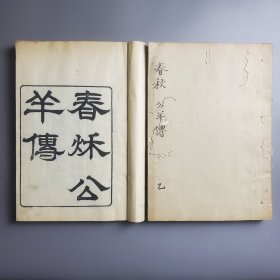 春秌公
羊傳
春秋公羊傳
乙